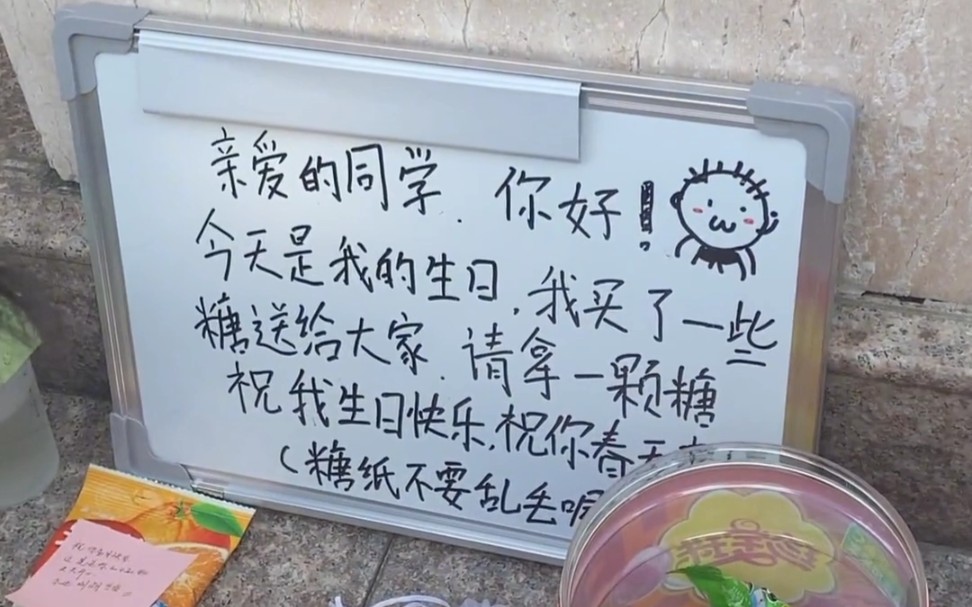 亲爱的同学.你好!
今天是我的生日,我买了一些
糖送给大家.请拿一颗糖
祝我生日快乐,祝你春天
(糖纸不要乱丢